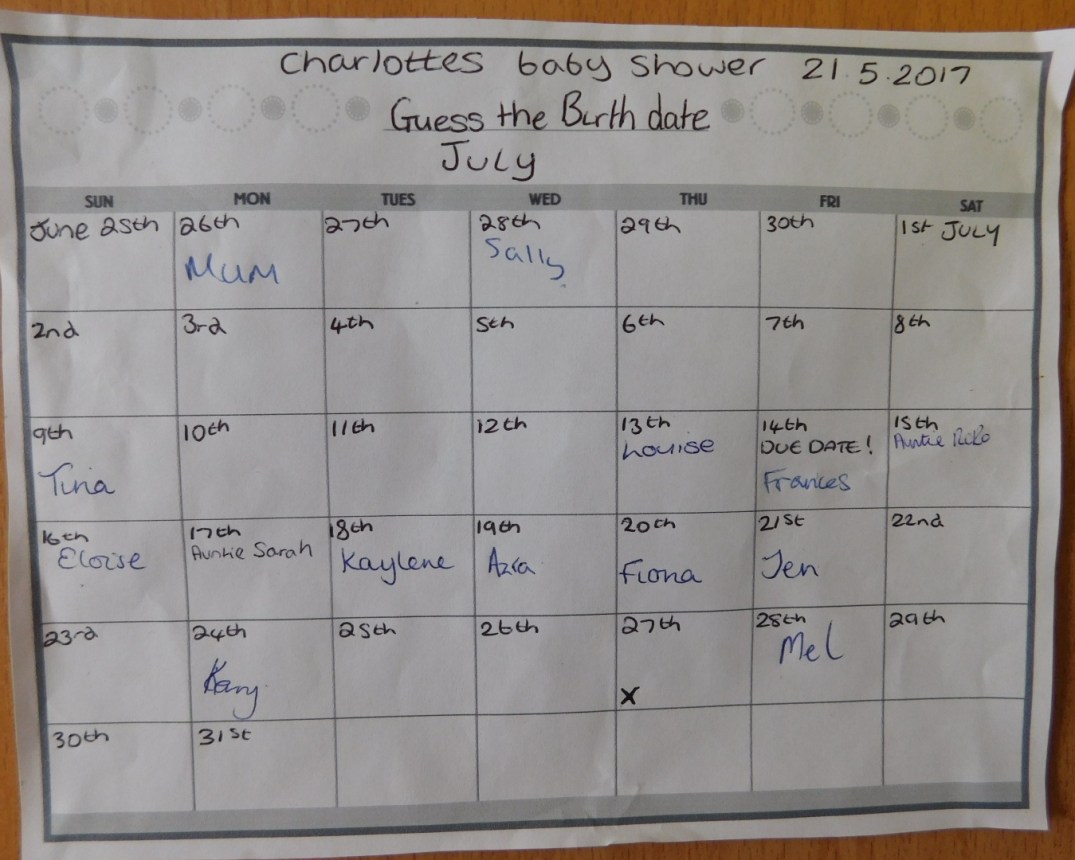 Charlottes baby shower 21.5.2017
Guess the Birth date
July
SUN MON TUES WED THU FRI SAT
June 25th 26th 27th 28th 29th 30th 1st JULY
Mum Sally
2nd 3rd 4th 5th 6th 7th 8th
9th 10th 11th 12th 13th 14th 15th
Louise DUE DATE! Auntie
Tina Frances
16th 17th 18th 19th 20th 21st 22nd
Eloise Auntie Sarah Kaylene Azra Fiona Jen
23rd 24th 25th 26th 27th 28th 29th
Mel
X
30th 31st